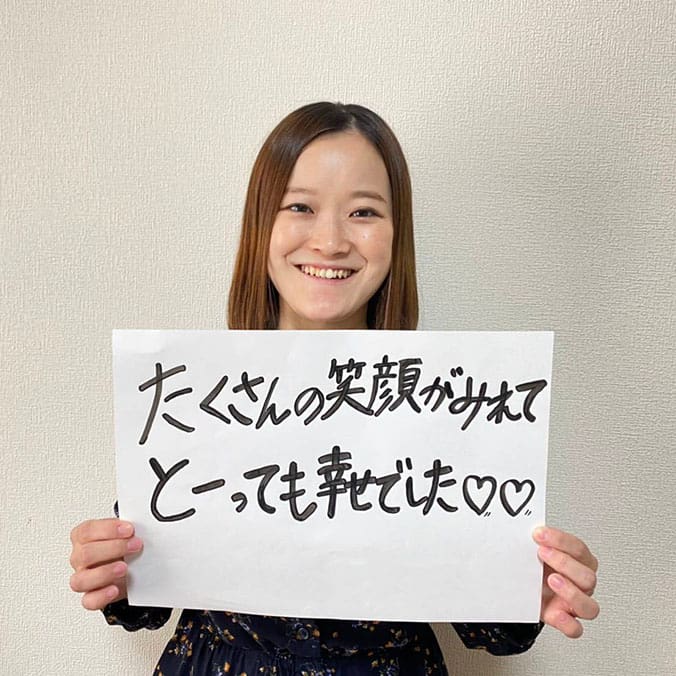 たくさんの笑顔がみれて
とーっても幸せでした♡♡